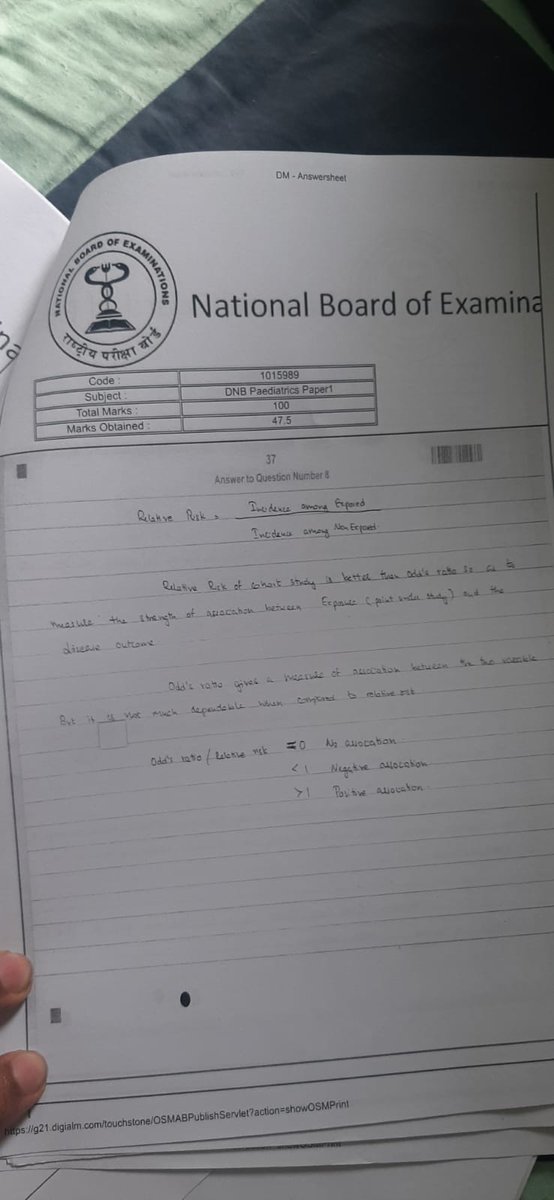 DM - Answersheet
NATIONAL BOARD OF EXAMINATIONS
राष्ट्रीय परीक्षा बोर्ड
National Board of Examina
Code : 1015989
Subject : DNB Paediatrics Paper1
Total Marks : 100
Marks Obtained : 47.5
37
Answer to Question Number 8
Relative Risk = Incidence among Exposed
Incidence among Non Exposed
Relative Risk of cohort study is better than odd's ratio so as to
measure the strength of association between Exposure (point under study) and the
disease outcome
Odd's ratio gives a measure of association between the two variable
But it is not much dependable when compared to relative risk
Odd's ratio / Relative risk = 0 No association
< 1 Negative association
> 1 Positive association
https://g21.digialm.com/touchstone/OSMABPublishServlet?action=showOSMPrint